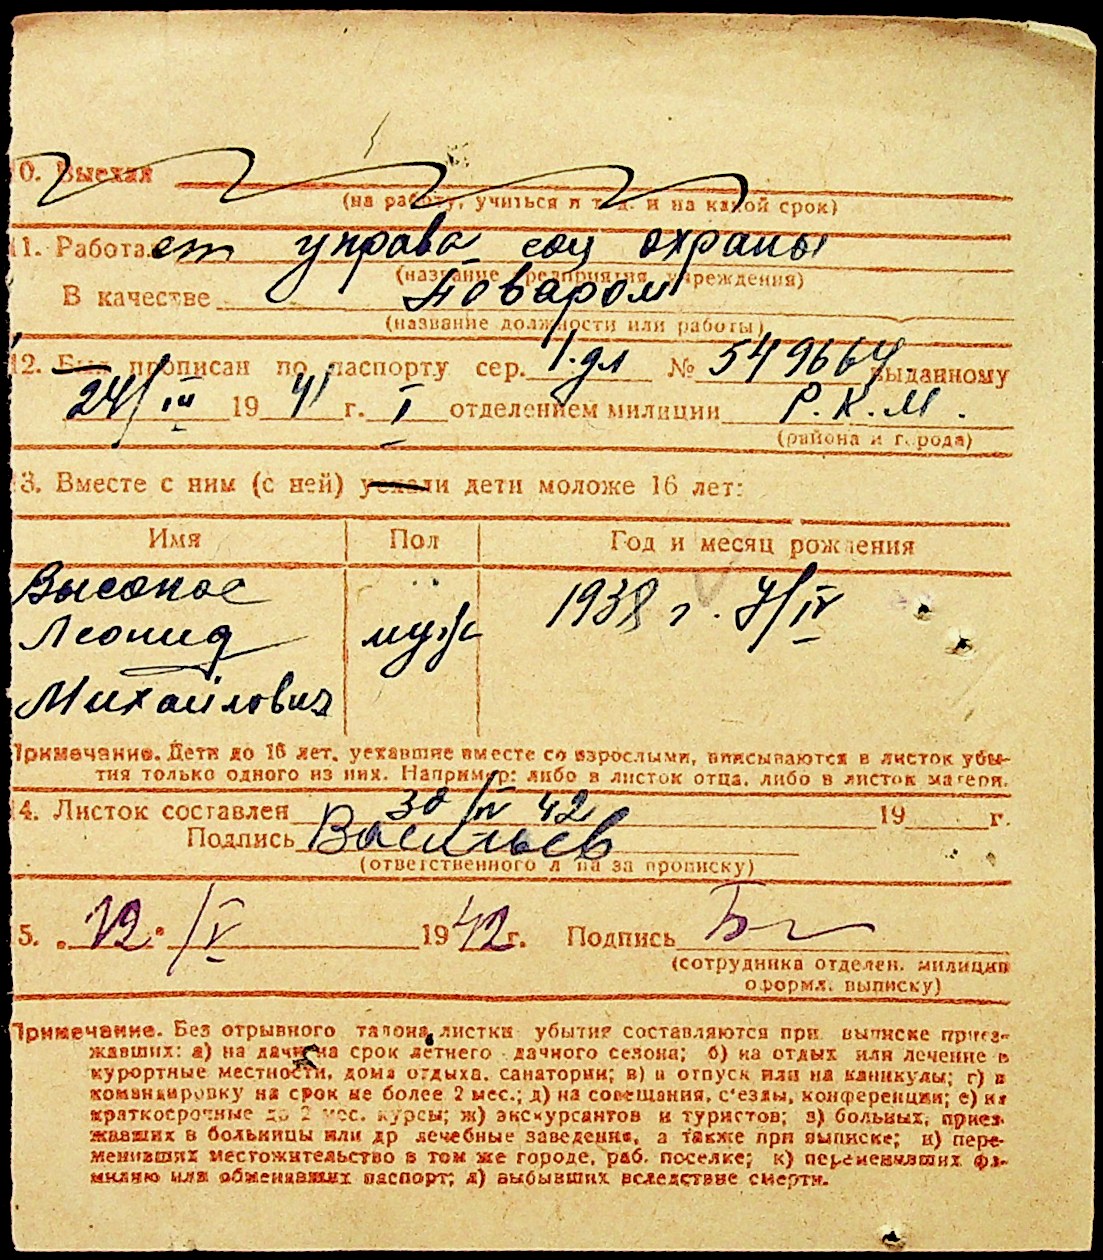 10. Выехал
(на работу, учиться и т. д. и на какой срок)
11. Работа ет управа соц охраны
(название предприятия, учреждения)
В качестве Поваром
(название должности или работы)
12. Был прописан по паспорту сер. 1.дл № 549664 выданному
24/III 1941 г. I отделением милиции Р. К. М.
(района и города)
13. Вместе с ним (с ней) уехали дети моложе 16 лет:
Имя Пол Год и месяц рождения
Высокос
Леонид муж 1938 г. 7/IV
Михайлович
Примечание. Дети до 16 лет, уехавшие вместе со взрослыми, вписываются в листок убы-
тия только одного из них. Например: либо в листок отца, либо в листок матери.
14. Листок составлен 30/IV 42 19 г.
Подпись Васильев
(ответственного л на за прописку)
15. 12 /V 1942 г. Подпись
(сотрудника отделен. милиции
оформл. выписку)
Примечание. Без отрывного талона листки убытия составляются при выписке приез-
жавших: а) на дачи на срок летнего дачного сезона; б) на отдых или лечение в
курортные местности, дома отдыха, санатории; в) в отпуск или на каникулы; г) в
командировку на срок не более 2 мес.; д) на совещания, с'езды, конференции; е) на
краткосрочные до 2 мес. курсы; ж) экскурсантов и туристов; з) больных, приез-
жавших в больницы или др лечебные заведения, а также при выписке; и) пере-
менивших местожительство в том же городе, раб. поселке; к) переменивших фа-
милию или обменявших паспорт; л) выбывших вследствие смерти.